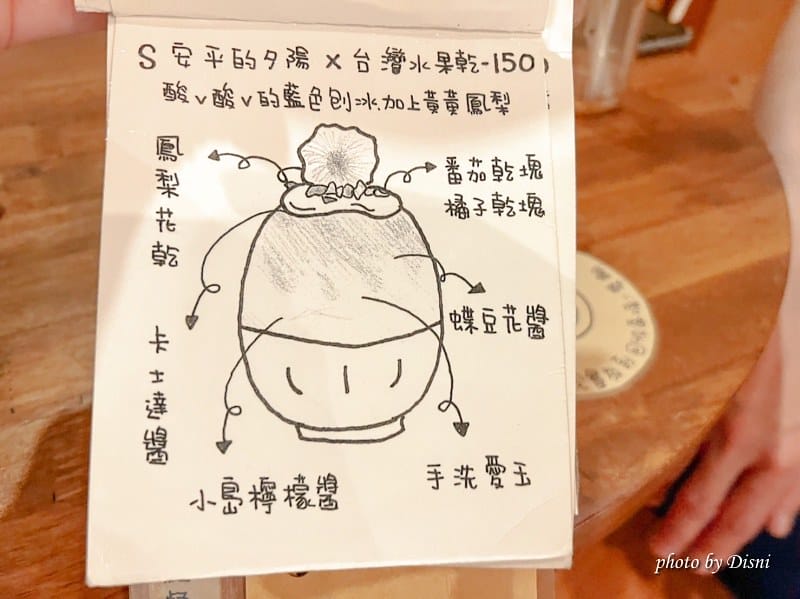 S 安平的夕陽 x 台灣水果乾-150
酸v酸v的藍色刨冰,加上黃黃鳳梨
鳳梨花乾
番茄乾塊
橘子乾塊
蝶豆花醬
卡士達醬
小島檸檬醬
手洗愛玉
photo by Disni